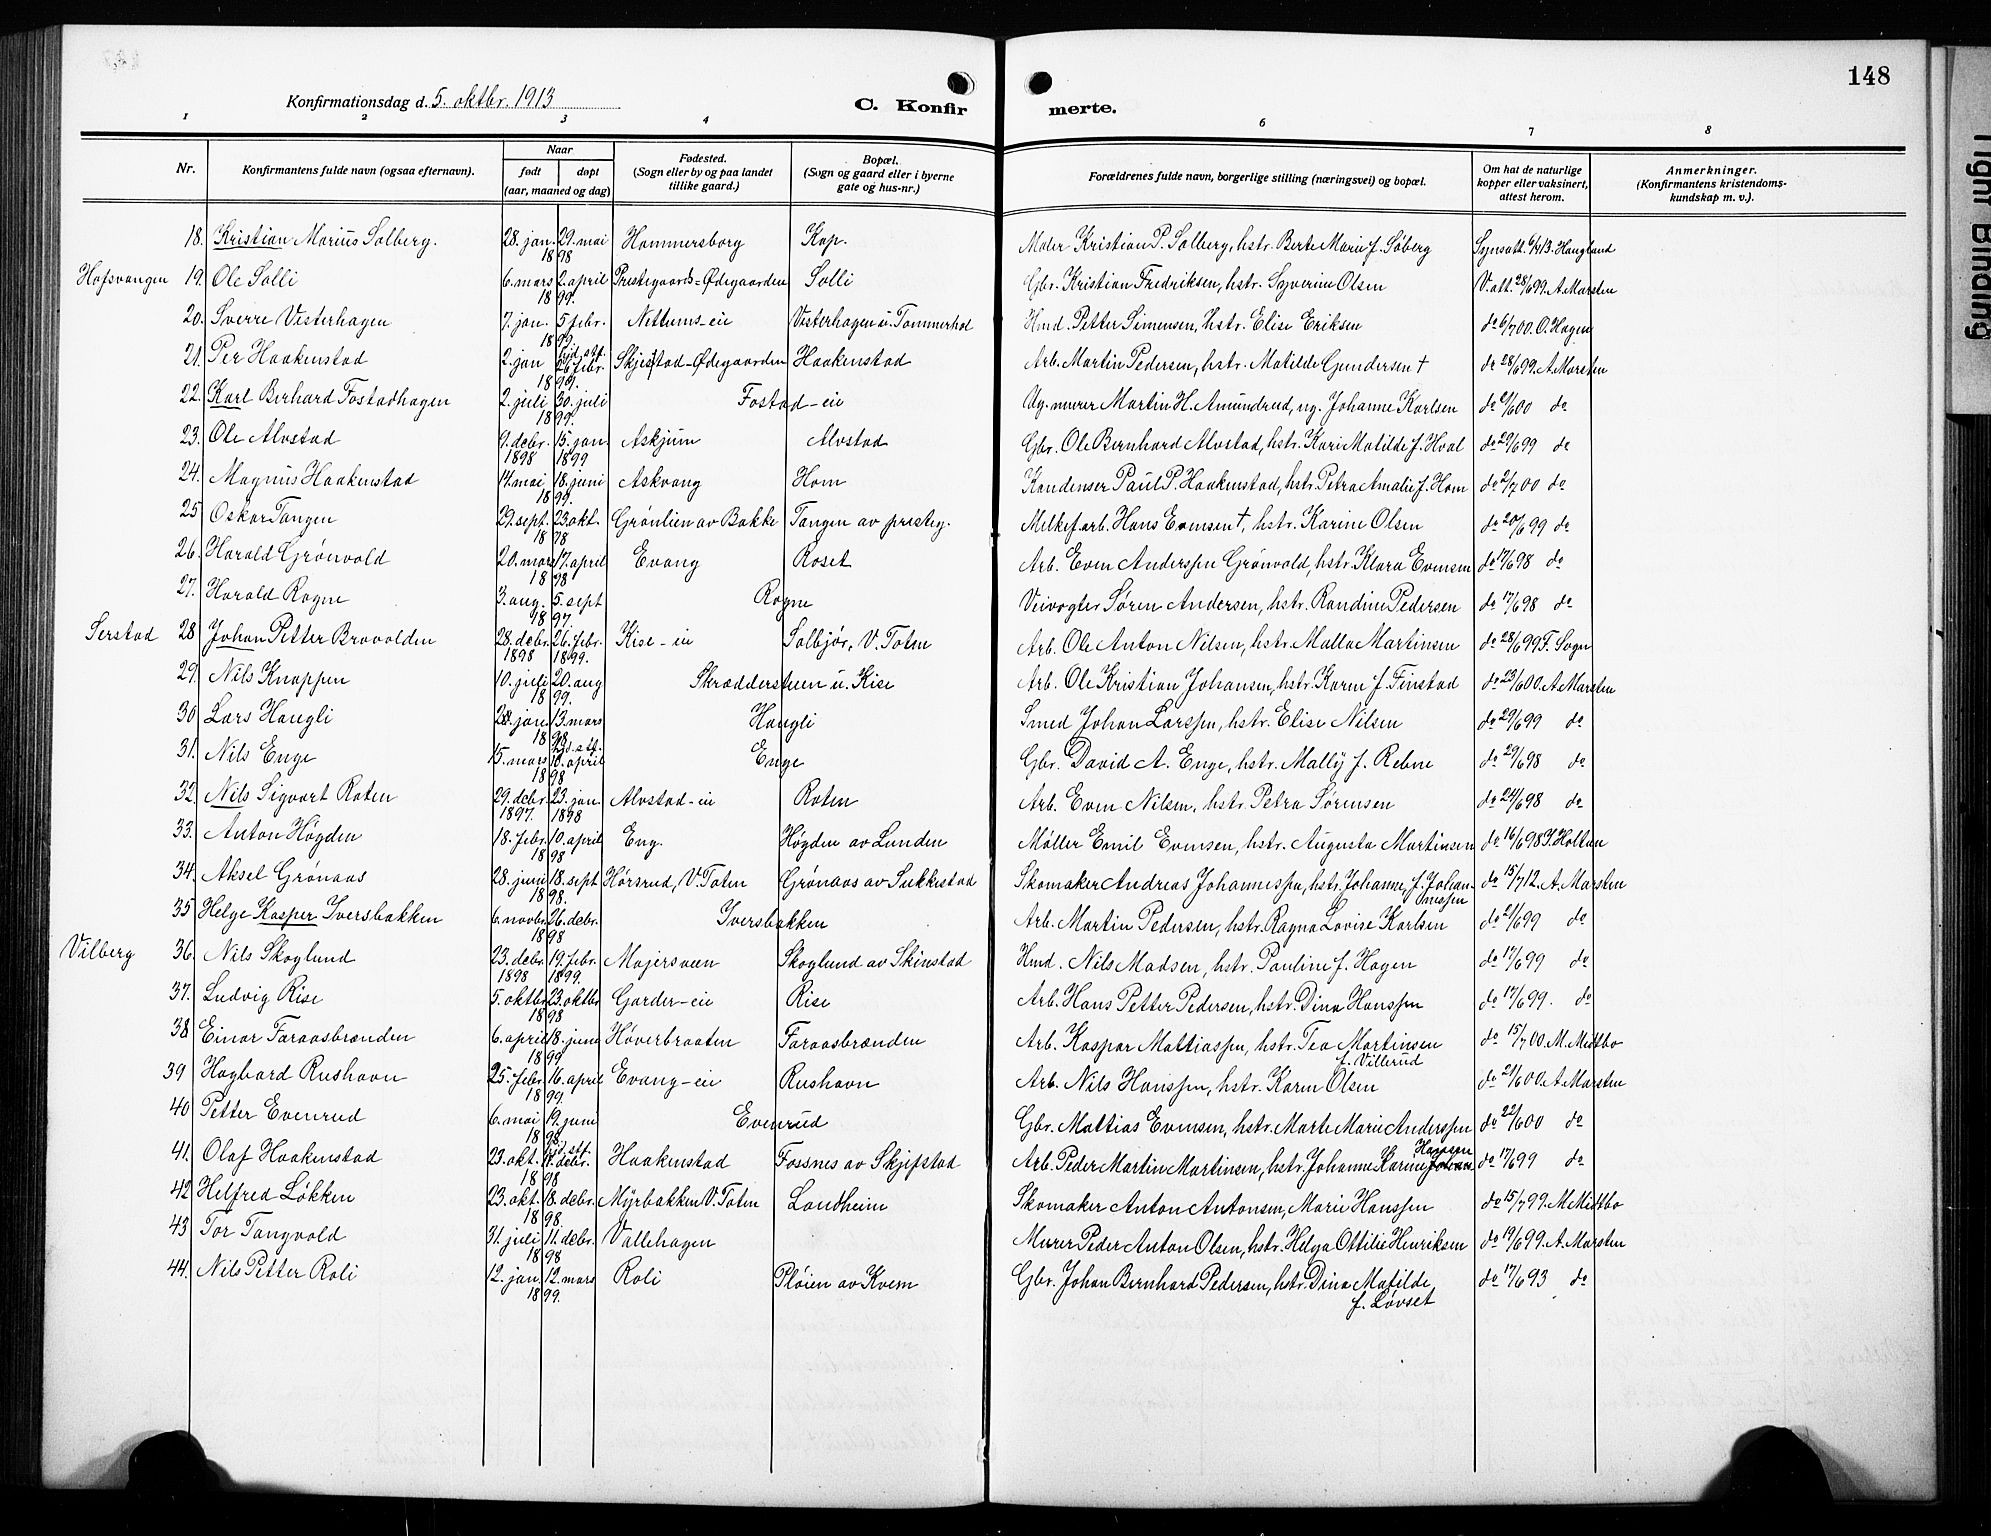 148
Konfirmationsdag d. 5. oktbr. 1913
C. Konfirmerte.
1 2 3 4 6 7 8
Nr. Konfirmantens fulde navn (ogsaa efternavn). Naar født døpt (aar, maaned og dag) Fødested. (Sogn eller by og paa landet tillike gaard.) Bopæl. (Sogn og gaard eller i byerne gate og hus-nr.) Forældrenes fulde navn, borgerlige stilling (næringsvei) og bopæl. Om hat de naturlige kopper eller vaksinert, attest herom. Anmerkninger. (Konfirmantens kristendoms-kundskap m. v.).
18. Kristian Marius Solberg. 28. jan. 29. mai 1898 Hammersborg Kap. Maler Kristian P. Solberg, hstr. Berte Marie f. Søberg Haugland
Hofsvangen 19. Ole Solli 6. mars 2. april 1899. Prestegaards-Ødegaarden Solli Gbr. Kristian Fredriksen, hstr. Syverine Olsen V. att. 28/6 99. A. Marsten
20. Sverre Vesterhagen 7. jan. 5 febr. 1899. Nettums-eie Vesterhagen u. Tømmerhol Hmd. Petter Simensen, hstr. Elise Eriksen do 6/7 00. O. Hagen
21. Per Haakenstad 2. jan 26. febr. 1899. Skjefstad-Ødegaarden Haakenstad Arb. Martin Pedersen, hstr. Matilde Gundersen † do 28/6 99. A. Marsten
22. Karl Berhard Fostadhagen 2. juli 30. juli 1899. Fostad-eie Ug. murer Martin H. Amundrud, ug. Johanne Karlsen do 2/6 00 do
23. Ole Alvstad 9. debr. 1898 15. jan. 1899 Askjum Alvstad Gbr. Ole Bernhard Alvstad, hstr. Kari Matilde f. Hval do 29/6 99 do
24. Magnus Haakenstad 14. mai 18. juni 1899. Askvang Hom Kondenser Paul P. Haakenstad, hstr. Petra Amalie f. Hom do 2/7 00 do
25 Oskar Tangen 29. sept. 23. okt. 1898 Grønlien av Bakke Tangen av presteg. Melkef. arb. Hans Evensen †, hstr. Karine Olsen do 20/6 99 do
26. Harald Grønvold 20. mars 17. april 1898 Evang Roset Arb. Even Anderssen Grønvold, hstr. Klara Evensen do 17/6 98 do
27. Harald Rogne 3. aug. 5. sept 1897. Rogne Veivogter Søren Andersen, hstr. Randine Pedersen do 17/6 98 do
Serstad 28 Johan Petter Bravolden 28. debr. 1898 26. febr. 1899. Kise-eie Solbjør, V. Toten Arb. Ole Anton Nilsen, hstr. Malla Martinsen do 28/6 99 F. Sogn
29. Nils Knappen 10. juli 20. aug 1899. Skrædderstuen u. Kise Arb. Ole Kristian Johansen, hstr. Karen f. Finstad do 23/6 00. A. Marsten
30 Lars Haugli 28. jan. 13. mars 1898 Haugli Smed Johan Larssen, hstr. Elise Nilsen do 29/6 99 do
31. Nils Enge 15. mars 10. april 1898 Enge Gbr. David A. Enge, hstr. Mally f. Rebne do 29/6 98 do
32. Nils Sigvart Roten 29. debr. 1897. 23. jan. 1898 Alvstad-eie Roten Arb. Even Nilsen, hstr. Petra Sørensen do 24/6 98 do
33. Anton Høgden 18. febr. 10. april 1898 Eng. Høgden av Lunden Møller Emil Evensen, hstr. Augusta Martinsen do 16/6 98 Holtun
34. Aksel Grønaas 28. juni 18. sept 1898. Hørsrud, V. Toten Grønaas av Sukkestad Skomaker Andreas Johannessen, hstr. Johanne f. Johannessen do 15/7 12. A. Marsten
35 Helge Kasper Iversbakken 6. novbr. 26. debr. 1898 Iversbakken Arb. Martin Pedersen, hstr. Ragna Lovise Karlsen do 21/6 99 do
Vilberg 36. Nils Skoglund 23. debr. 1898 19. febr. 1899. Majersveen Skoglund av Skinstad Hmd. Nils Madsen, hstr. Pauline f. Hagen do 17/6 99 do
37. Ludvig Rise 5. oktbr 23. oktbr 1898 Garder-eie Rise Arb. Hans Petter Pedersen, hstr. Dina Hanssen do 17/6 99. do
38 Einar Faraasbrænden 6. april 18. juni 1899 Høverbraaten Faraasbrænden Arb. Kaspar Mattiassen, hstr. Tea Martinsen f. Villerud do 15/7 00. M. Midtbo
39 Hagbard Rushavn 25. febr. 16. april 1899. Evang-eie Rushavn Arb. Nils Hanssen, hstr. Karen Olsen do 21/6 00. A. Marsten
40 Petter Evenrud 6. mai 19. juni 1898. Evenrud Gbr. Mattias Evensen, hstr. Marte Marie Anderssen do 22/6 00 do
41. Olaf Haakenstad 23. okt. 11. debr. 1898 Haakenstad Fossnes av Skjefstad Arb. Peder Martin Martinsen, hstr. Johanne Karine Hansen do 17/6 99 do
42 Helfred Løkken 23. okt. 18. debr. 1898. Myrbakken V. Toten Landheim Skomaker Anton Antonsen, Marie Hanssen do 15/7 99. M. Midtbo
43 Tor Tangvold 31. juli 11. debr. 1898 Vallehagen Murer Peder Anton Olsen, hstr. Helga Ottilie Henriksen do 19/6 99. A. Marsten
44. Nils Petter Roli 12. jan. 12. mars 1899. Roli Pløien av Kvem Gbr. Johan Bernhard Pedersen, hstr. Dina Matilde f. Løvset do 17/6 93 do
Tight Binding